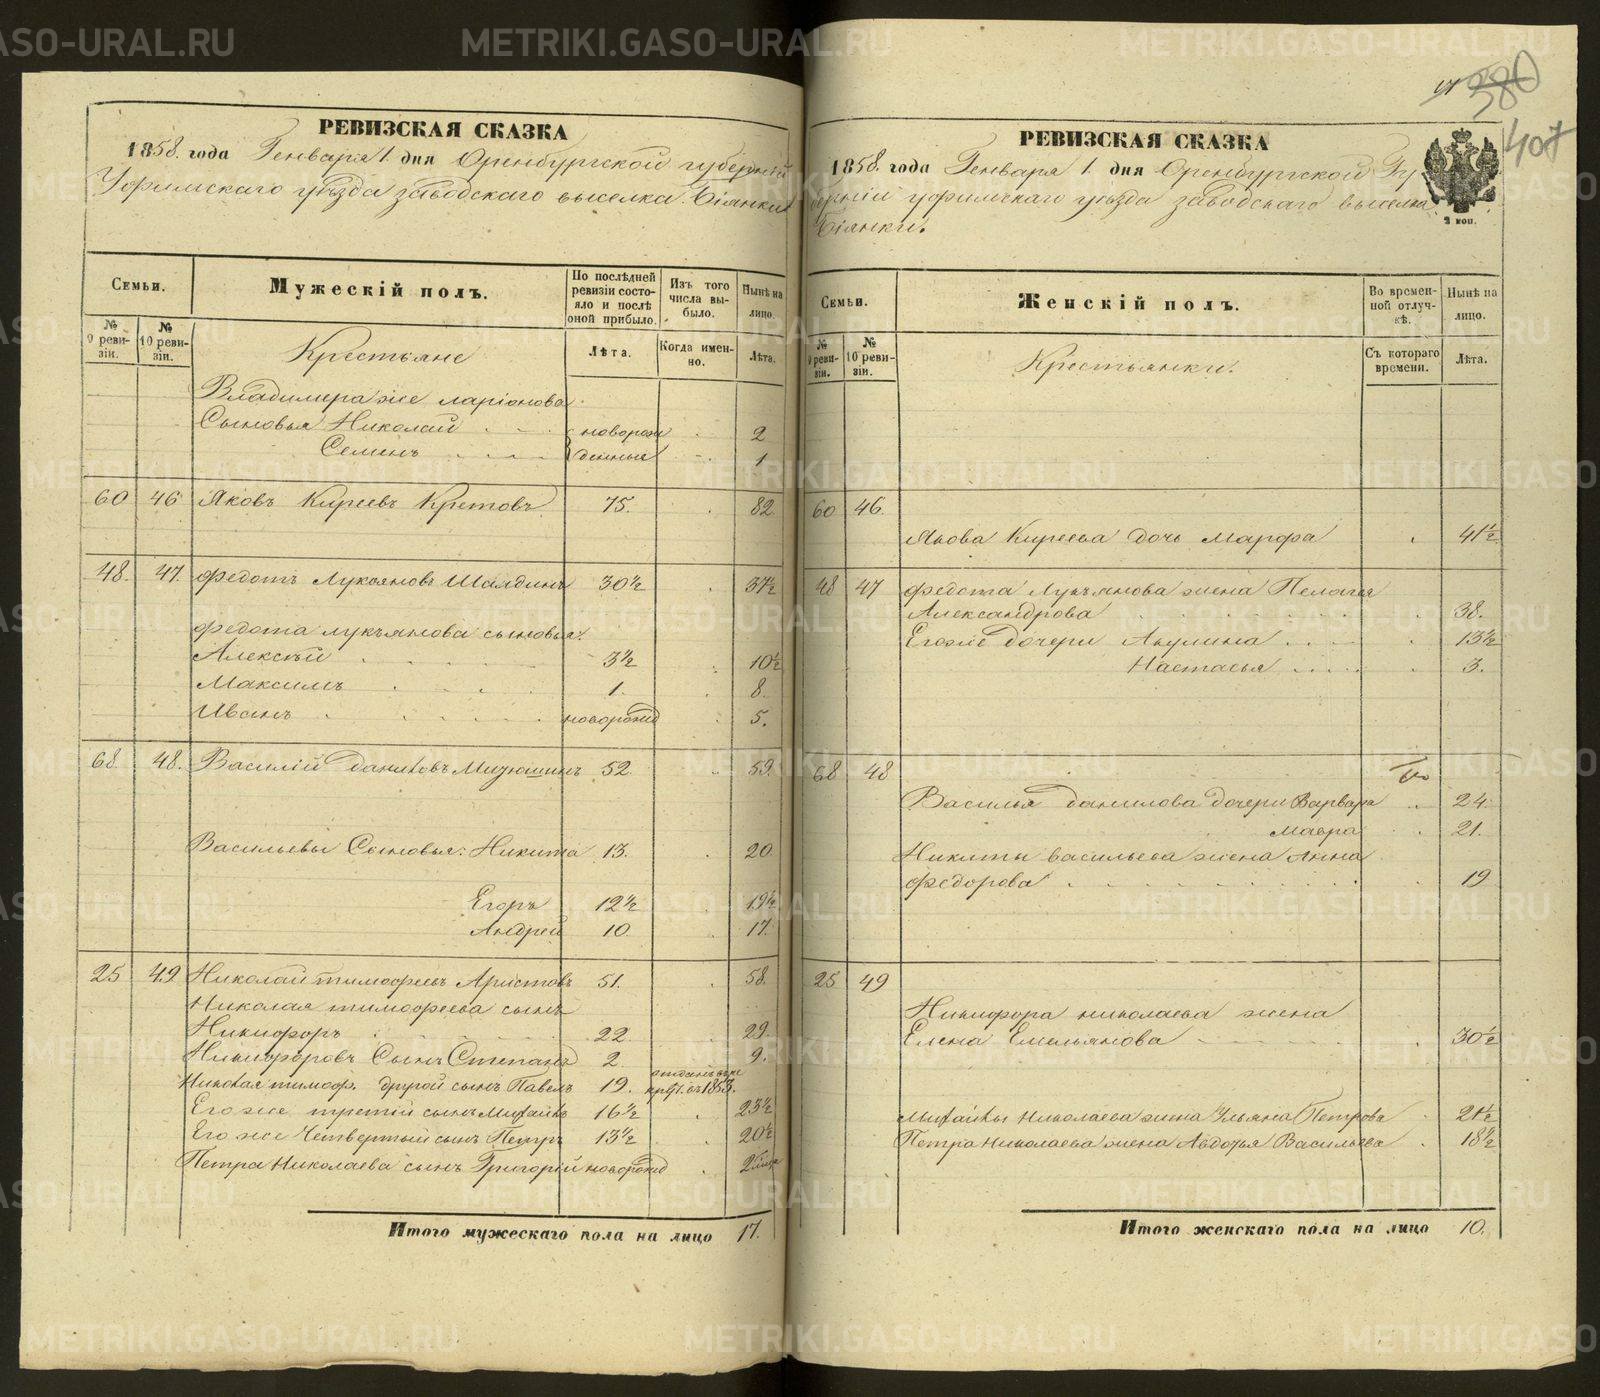 РЕВИЗСКАЯ СКАЗКА
1858. года Генваря 1. дня Оренбургской губерніи
Уфимскаго уѣзда заводскаго выселка Біянки
Семьи.
Мужескій полъ.
По послѣдней ревизіи состояло и послѣ оной прибыло.
Изъ того числа выбыло.
Нынѣ на лицо.
№ 9 ревизіи.
№ 10 ревизіи.
Крестьяне
Лѣта.
Когда именно.
Лѣта.
Владимера же ларіонова
Сыновья Николай новорож 2
Семенъ денные 1
60 46 Яковъ Киреевъ Кретовъ 75. 82
48. 47. Федотъ Лукояновъ Шалдинъ 30½ 37½
Федота лукъянова сыновья:
Алексѣй 3½ 10½
Максимъ 1. 8.
Иванъ новорожд 5.
68. 48. Василій даниловъ Мизюшинъ 52. 59.
Васильевы Сыновья: Никита 13. 20
Егоръ 12½ 19½
Андрей 10. 17.
25 49 Николай тимофеевъ Аристовъ 51. 58.
Николая тимофеева сынъ
Никифоръ 22. 29.
Никифоровъ Сынъ Степанъ 2. 9.
Николая тимоф. другой сынъ Павелъ 19. 1853.
Его же третій сынъ Михайло 16½ 23½
Его же Четвертый сынъ Петръ 13½ 20½
Петра Николаева сынъ Григорій новорожд 2
Итого мужескаго пола на лицо 17.
380
407
РЕВИЗСКАЯ СКАЗКА
1858. года Генваря 1. дня Оренбургской Гу
берніи уфимскаго уѣзда заводскаго выселка
Біянки.
2 коп.
Семьи.
Женскій полъ.
Во временной отлучкѣ.
Нынѣ на лицо.
№ 9 ревизіи.
№ 10 ревизіи.
Крестьянки.
Съ котораго времени.
Лѣта.
60 46.
Якова Киреева дочь Марфа 41½
48 47 Федота Лукъянова жена Пелагея
Александрова 38.
Его же дочери Акулина 13½
Настасья 3.
68 48
Василья данилова дочери Варвара 24.
Мавра 21.
Никиты васильева жена Анна
Федорова 19
25 49
Никифора николаева жена
Елена Емельянова 30½
Михайлы Николаева жена Ульяна Петрова 21½
Петра Николаева жена Авдотья Васильева 18½
Итого женскаго пола на лицо 10.
METRIKI.GASO-URAL.RU